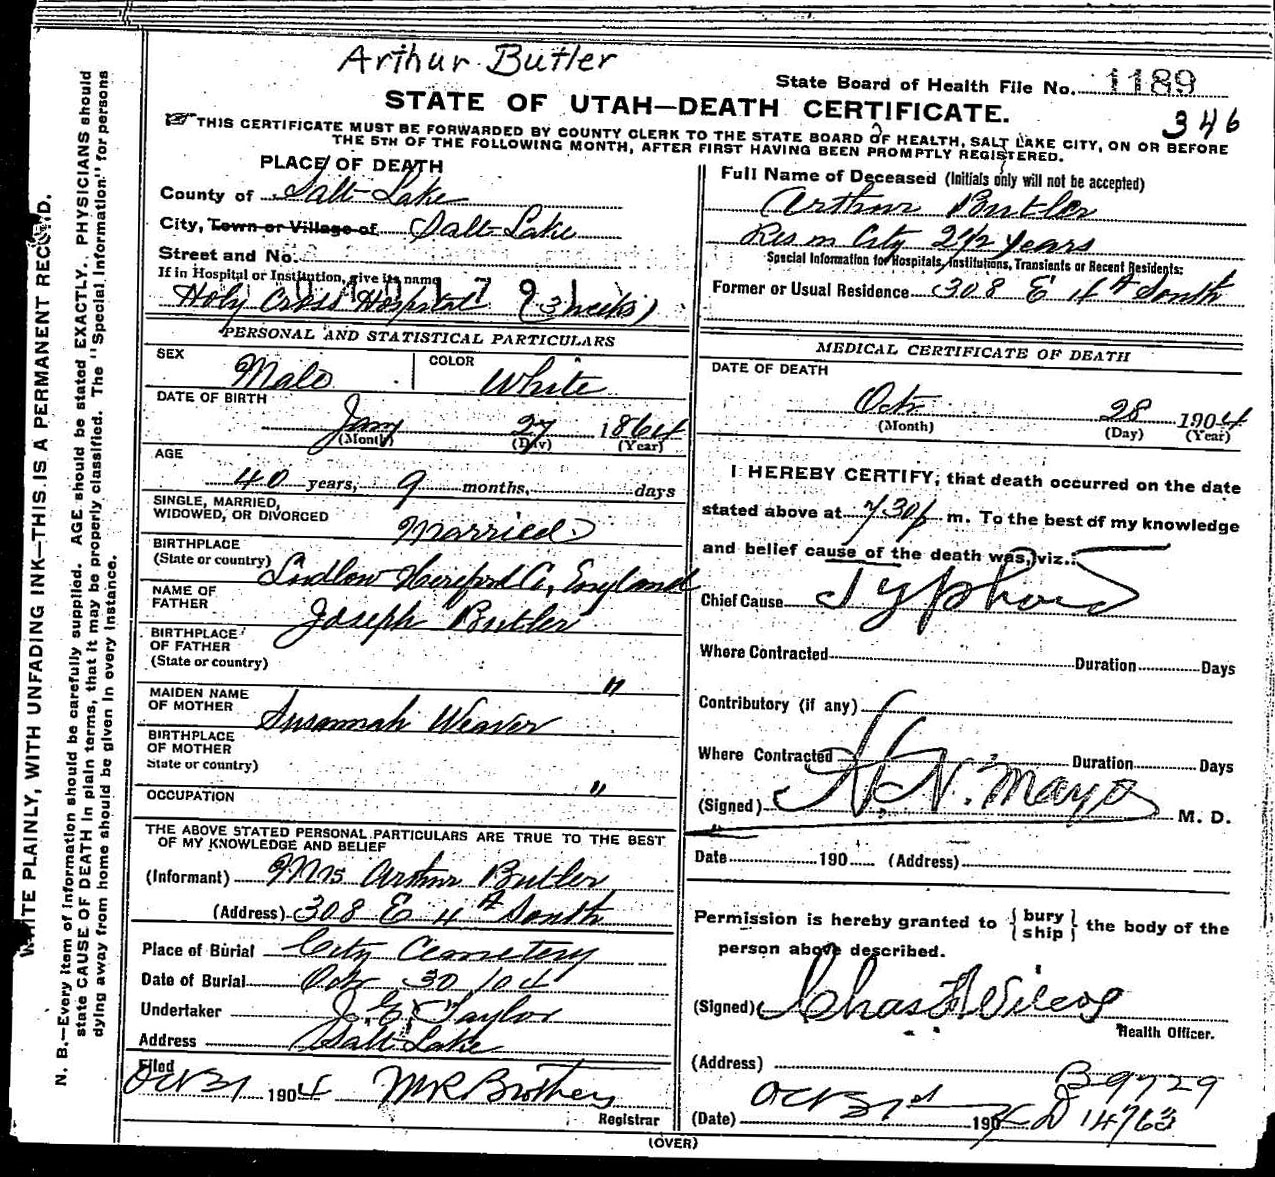 Arthur Butler
State Board of Health File No. 1189
STATE OF UTAH—DEATH CERTIFICATE.
346
THIS CERTIFICATE MUST BE FORWARDED BY COUNTY CLERK TO THE STATE BOARD OF HEALTH, SALT LAKE CITY, ON OR BEFORE
THE 5TH OF THE FOLLOWING MONTH, AFTER FIRST HAVING BEEN PROMPTLY REGISTERED.
PLACE OF DEATH
County of Salt Lake
City, Town or Village of Salt Lake
Street and No.
If in Hospital or Institution, give its name
Holy Cross Hospital (3 weeks)
PERSONAL AND STATISTICAL PARTICULARS
SEX Male
COLOR White
DATE OF BIRTH
Jany 27 1864
(Month) (Day) (Year)
AGE
40 years, 9 months, days
SINGLE, MARRIED,
WIDOWED, OR DIVORCED Married
BIRTHPLACE
(State or country) Ludlow Hereford Co, England
NAME OF
FATHER Joseph Butler
BIRTHPLACE
OF FATHER
(State or country) "
MAIDEN NAME
OF MOTHER Susannah Weaver
BIRTHPLACE
OF MOTHER
State or country) "
OCCUPATION
THE ABOVE STATED PERSONAL PARTICULARS ARE TRUE TO THE BEST
OF MY KNOWLEDGE AND BELIEF
(Informant) Mrs Arthur Butler
(Address) 308 E 4th South
Place of Burial City Cemetery
Date of Burial Oct 30/04
Undertaker J. E. Taylor
Address Salt Lake
Filed
Oct 31 1904
Registrar
Full Name of Deceased (Initials only will not be accepted)
Arthur Butler
Res in City 2 1/2 years
Special Information for Hospitals, Institutions, Transients or Recent Residents:
Former or Usual Residence 308 E 4th South
MEDICAL CERTIFICATE OF DEATH
DATE OF DEATH
Oct 28 1904
(Month) (Day) (Year)
I HEREBY CERTIFY, that death occurred on the date
stated above at 7 30 p m. To the best of my knowledge
and belief cause of the death was, viz.:
Chief Cause Typhoid
Where Contracted Duration Days
Contributory (if any)
Where Contracted Duration Days
(Signed) H. N. Mayo M. D.
Date 190 (Address)
Permission is hereby granted to {bury ship} the body of the
person above described.
(Signed) Chas F Wilcox
Health Officer.
(Address)
B-9729
(Date) Oct 31st 190 D 14763
(OVER)
WRITE PLAINLY, WITH UNFADING INK—THIS IS A PERMANENT RECORD.
N. B.—Every item of information should be carefully supplied. AGE should be stated EXACTLY. PHYSICIANS should
state CAUSE OF DEATH in plain terms, that it may be properly classified. The "Special Information" for persons
dying away from home should be given in every instance.